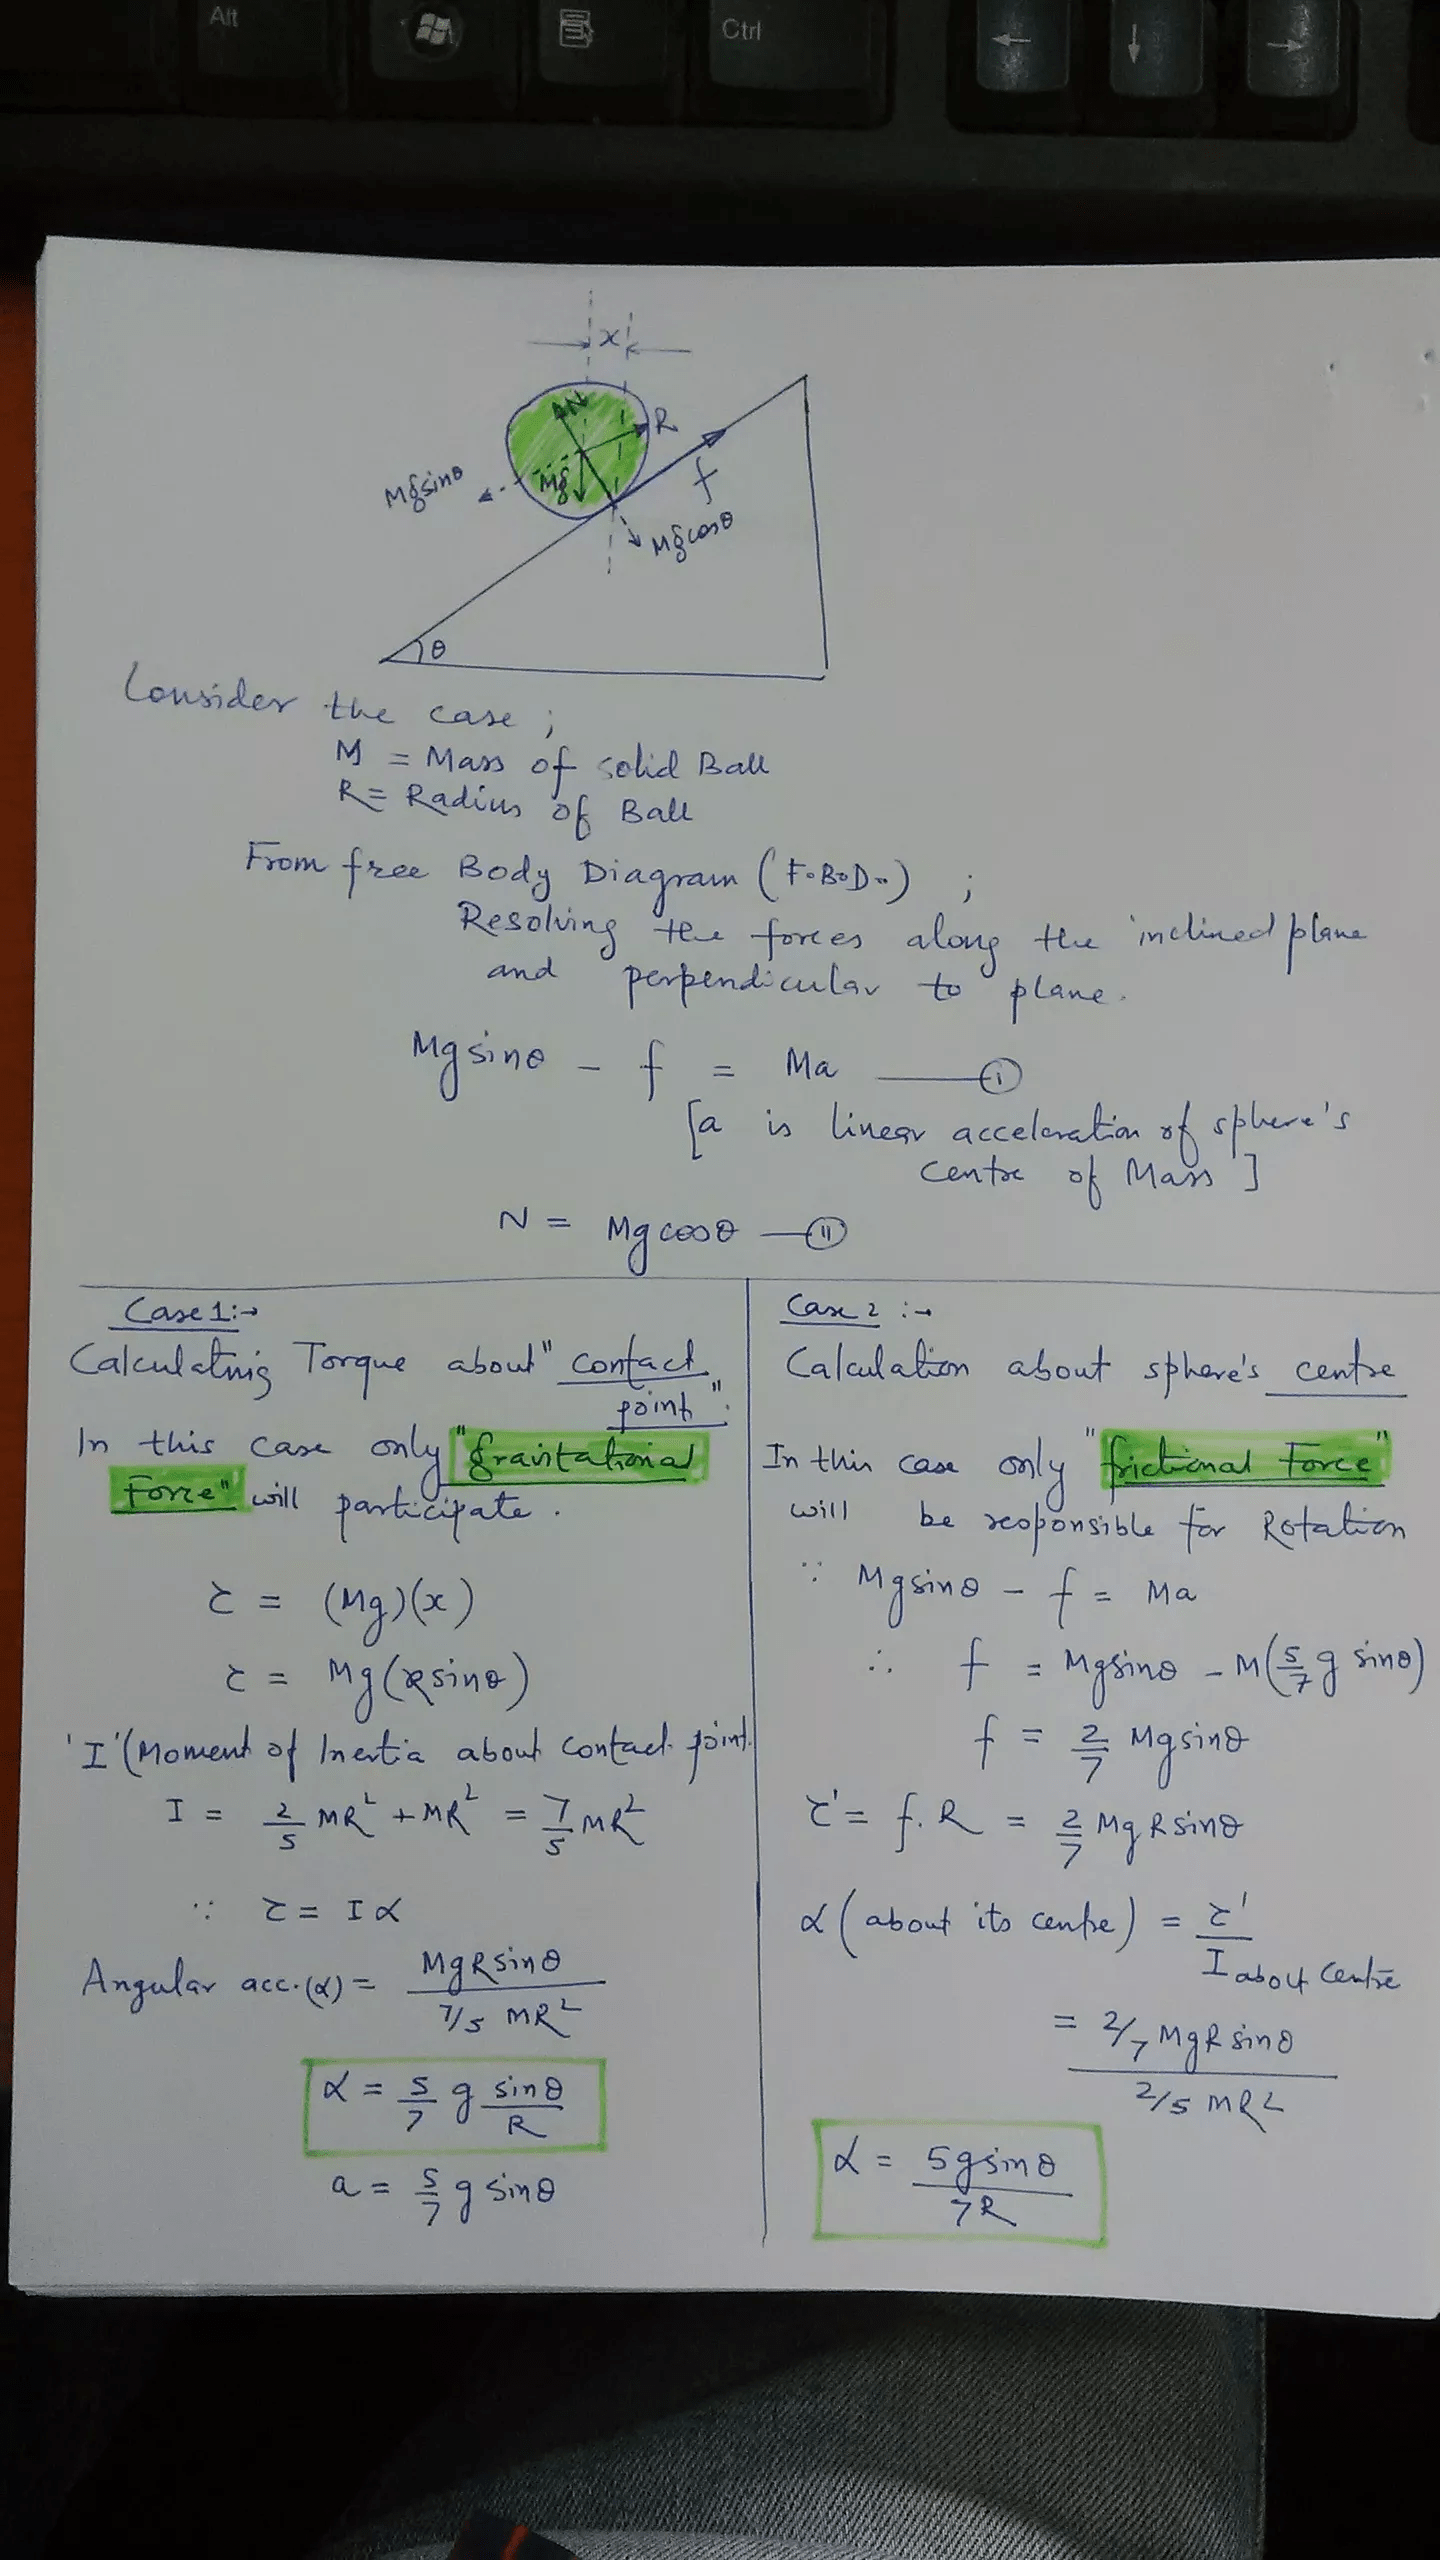 Alt
Ctrl
x
N
R
Mg
Mgsinθ
f
Mgcosθ
θ
Consider the case ;
M = Mass of solid Ball
R = Radius of Ball
From free Body Diagram (F.B.D.) ;
Resolving the forces along the inclined plane
and perpendicular to plane.
Mgsinθ - f = Ma —(i)
[a is linear acceleration of sphere's
centre of Mass ]
N = Mgcosθ —(ii)
Case 1:→
Calculating Torque about "contact
point".
In this case only "gravitational
Force" will participate.
τ = (Mg)(x)
τ = Mg(Rsinθ)
'I'(Moment of Inertia about contact point.
I = 2/5 MR² + MR² = 7/5 MR²
∵ τ = Iα
Angular acc.(α) = MgRsinθ / 7/5 MR²
α = 5/7 g sinθ/R
a = 5/7 g sinθ
Case 2 :→
Calculation about sphere's centre
In this case only "frictional Force"
will be responsible for Rotation
∵ Mgsinθ - f = Ma
∴ f = Mgsinθ - M(5/7 g sinθ)
f = 2/7 Mgsinθ
τ' = f.R = 2/7 MgRsinθ
α (about its centre) = τ' / I about centre
= 2/7 MgRsinθ / 2/5 MR²
α = 5gsinθ / 7R